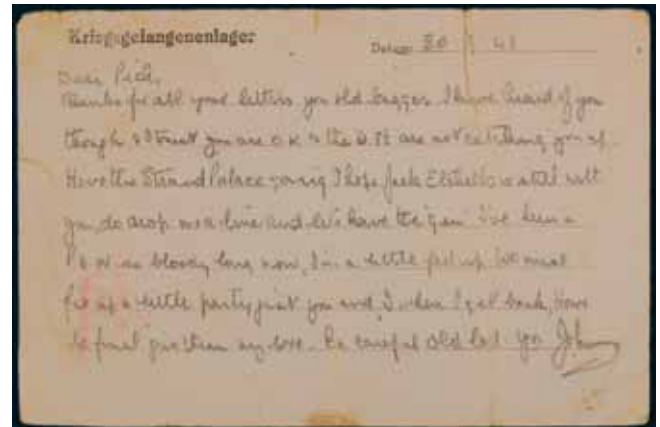 Kriegsgefangenenlager
Datum: 30 43
Dear Dick,
Thanks for all your letters you old bugger. I have heard of you
though & trust you are O.K & the are not catching you up.
Have the Strand Palace I hope Jack is still with
you, do drop me a line and let's have the 'gen'. I've been a
P.O.W. so bloody long now, I'm a little fed up. We must
fix up a little party just you and I, when I get back,
give them my love. Be careful old lad yrs Johnny